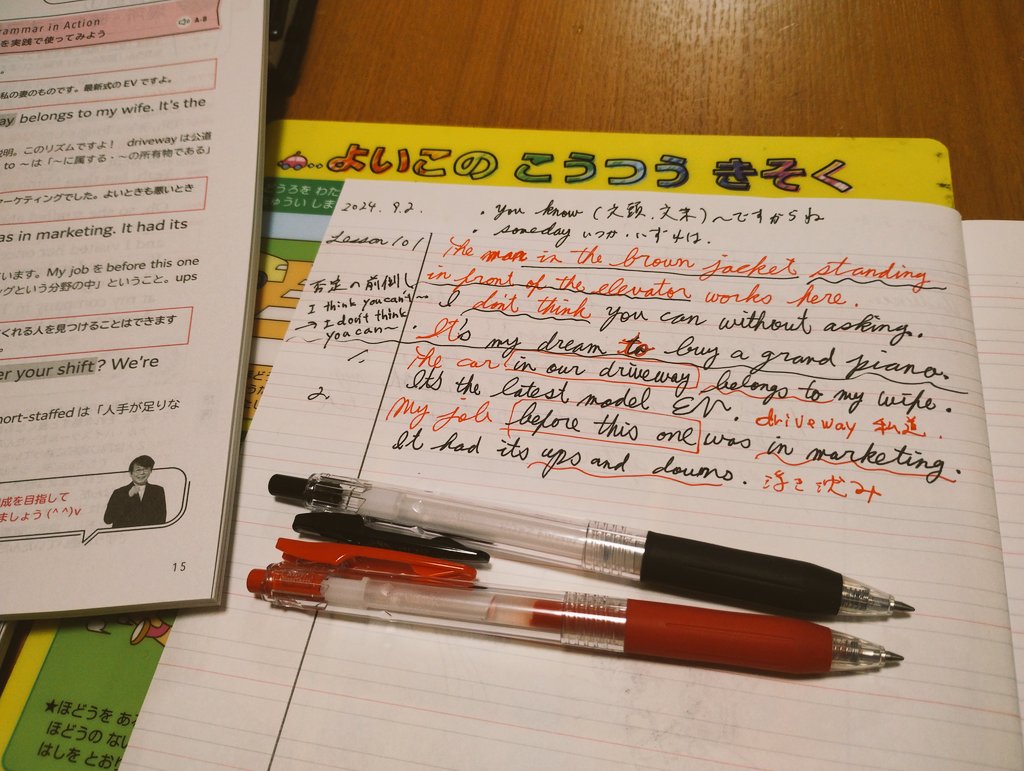 Grammar in Action
A-8
を実践で使ってみよう
私の妻のものです。最新式の EV ですよ。
belongs to my wife. It's the
説明。このリズムですよ! driveway は公道
to ～は「～に属する・～の所有物である」
マーケティングでした。よいときも悪いとき
as in marketing. It had its
います。My job を before this one
グという分野の中」ということ。ups
くれる人を見つけることはできます
er your shift? We're
short-staffed は「人手が足りな
成を目指して
ましょう (^^)v
15
よいこの こうつう きそく
どうろを わた
2024. 9.2.
・you know (文頭.文末) ～ですからね
・someday いつか.いずれは.
Lesson 101
The man in the brown jacket standing
in front of the elevator works here.
否定の前倒し
I think you can't～
→ I don't think
you can～
I don't think you can without asking.
・It's my dream to buy a grand piano.
1.
The car in our driveway belongs to my wife.
It's the latest model EV. driveway 私道.
2
My job before this one was in marketing.
It had its ups and downs. 浮き沈み
★ほどうを ある
ほどうの ない
はしを とおり